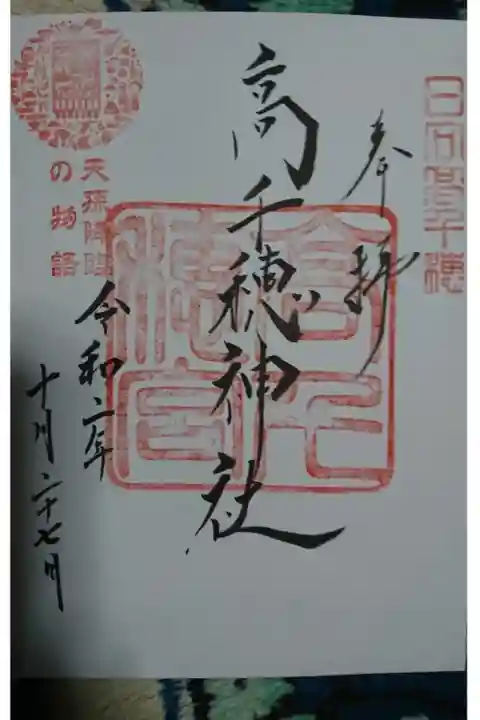 日向高千穂
奉拝
高千穂神社
高千
穂宮
天孫降臨
の物語
令和二年
十月二十七日